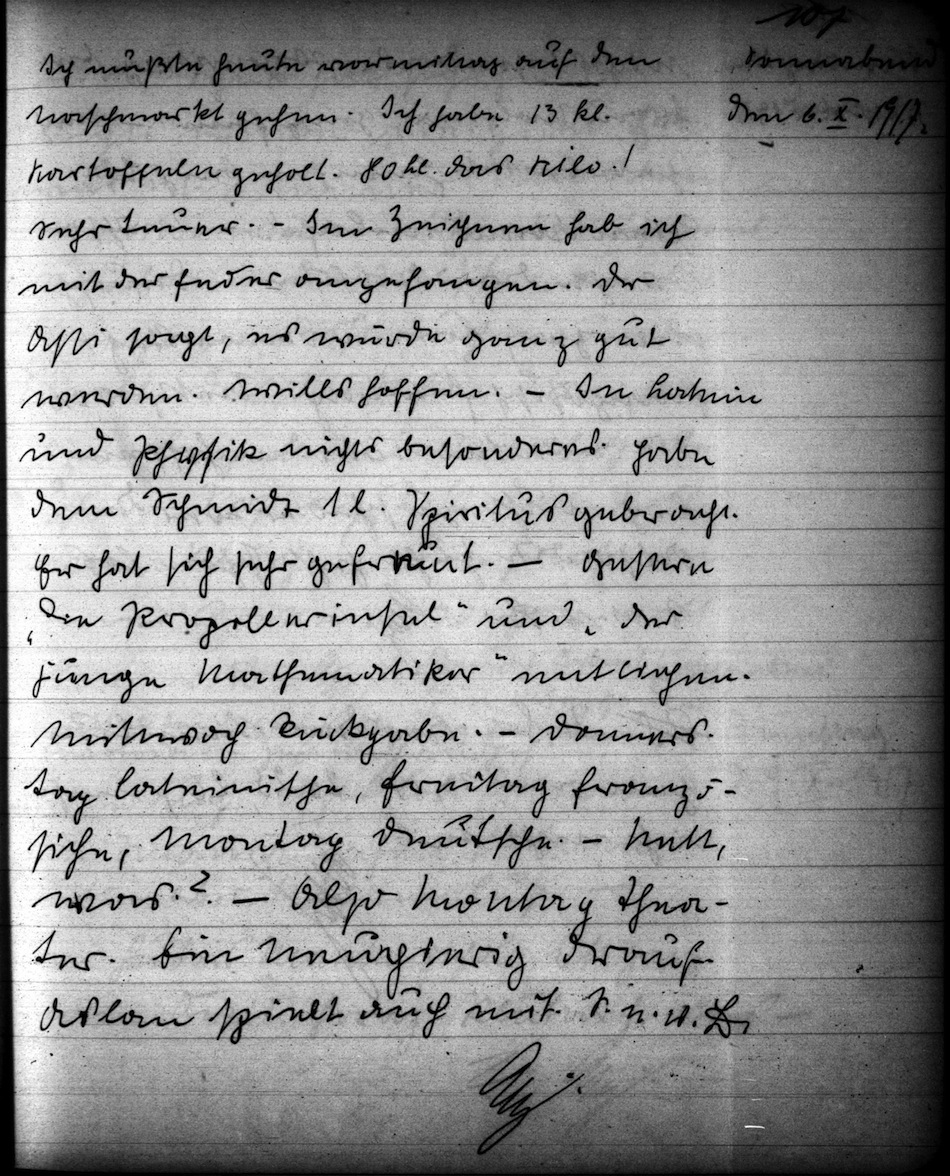 107
Sonnabend
den 6. X. 1917.
Ich mußte heute vormittag auf den
Naschmarkt gehen. Ich habe 13 kl.
Kartoffeln geholt. 80 hl. das Kilo.!
Sehr teuer. - Im Zeichnen hab ich
mit der Feder angefangen. Der
Assi sagt, es würde ganz gut
werden. Wills hoffen. - In Latein
und Physik nichts besonderes. Habe
dem Schmidt 1 l. Spiritus gebracht.
Er hat sich sehr gefreut. - Gestern
„Die Propellerinsel" und „der
junge Mathematiker" entliehen.
Mittwoch Rückgabe. - Donners-
tag lateinische, Freitag franzö-
sische, Montag deutsche. - Nett,
was.? - Also Montag Thea-
ter. Bin neugierig drauf.
Aslan spielt auch mit. S. u. w.